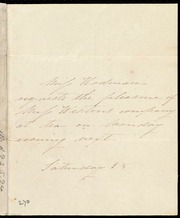 Miss Rodman
requests the pleasure of
Miss Weston's company
at tea on Monday
evening next.
Saturday 13
270